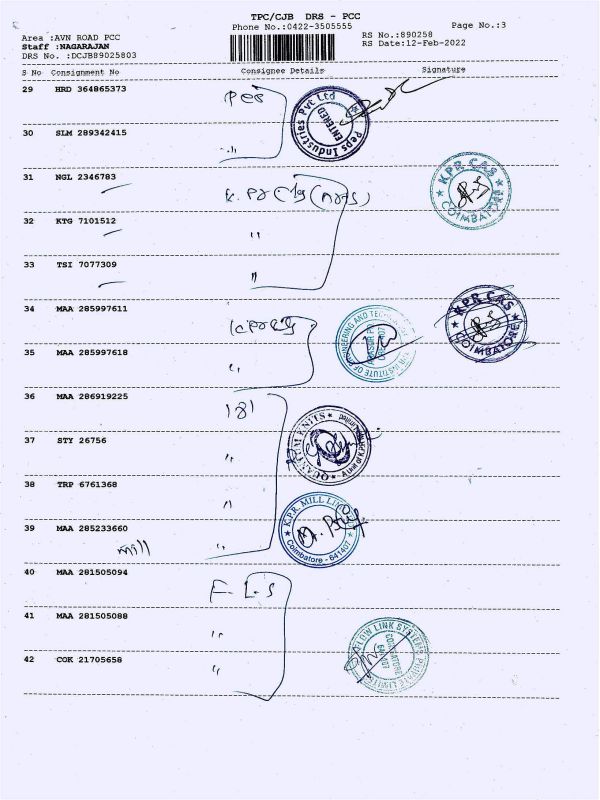 TPC/CJB DRS - PCC
Phone No.:0422-3505555
Page No.:3
Area :AVN ROAD PCC
RS No.:890258
Staff :NAGARAJAN
RS Date:12-Feb-2022
DRS No. :DCJB89025803
S No Consignment No Consignee Details Signature
29 HRD 364865373
Peps Industries Pvt Ltd
ENTERED
30 SLM 289342415
31 NGL 2346783
KPR CAS
COIMBATORE
32 KTG 7101512 "
33 TSI 7077309 "
34 MAA 285997611
KPR CAS
COIMBATORE
35 MAA 285997618 "
36 MAA 286919225
37 STY 26756 "
38 TRP 6761368 "
K.P.R. MILL LIMITED
Coimbatore - 641407
39 MAA 285233660 mill "
40 MAA 281505094 F.L.S
41 MAA 281505088 "
FLOW LINK SYSTEMS PRIVATE LIMITED
COIMBATORE
42 COK 21705658 "